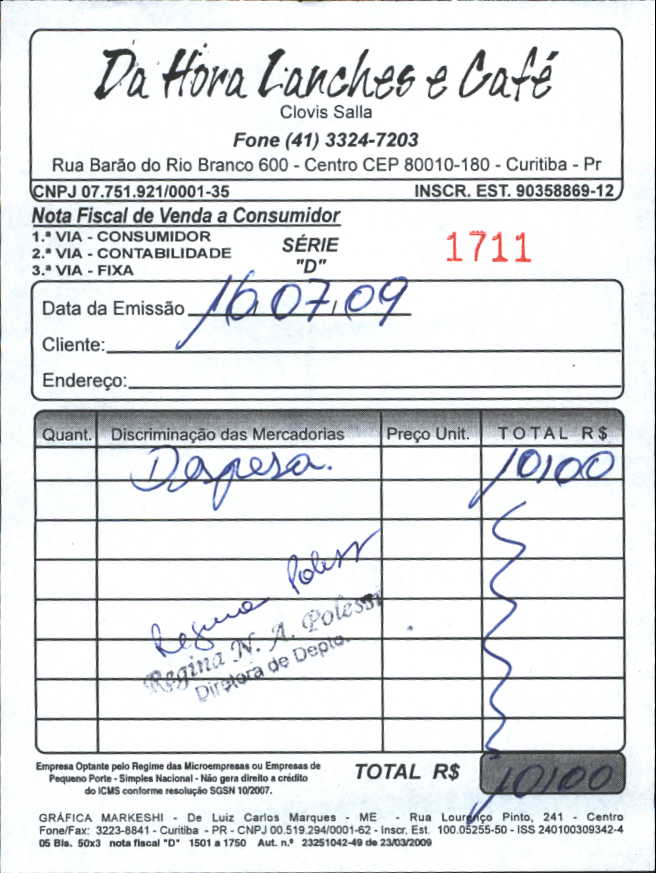 Da Hora Lanches e Café
Clovis Salla
Fone (41) 3324-7203
Rua Barão do Rio Branco 600 - Centro CEP 80010-180 - Curitiba - Pr
CNPJ 07.751.921/0001-35 INSCR. EST. 90358869-12
Nota Fiscal de Venda a Consumidor
1.ª VIA - CONSUMIDOR
2.ª VIA - CONTABILIDADE
3.ª VIA - FIXA
SÉRIE
"D"
1711
Data da Emissão 16.07.09
Cliente:
Endereço:
Quant. Discriminação das Mercadorias Preço Unit. TOTAL R$
Despesa. 10,00
Regina Polessi
Regina N. A. Polessi
Diretora de Depto.
Empresa Optante pelo Regime das Microempresas ou Empresas de
Pequeno Porte - Simples Nacional - Não gera direito a crédito
do ICMS conforme resolução SGSN 10/2007.
TOTAL R$ 10,00
GRÁFICA MARKESHI - De Luiz Carlos Marques - ME - Rua Lourenço Pinto, 241 - Centro
Fone/Fax: 3223-8841 - Curitiba - PR - CNPJ 00.519.294/0001-62 - Inscr. Est. 100.05255-50 - ISS 240100309342-4
05 Bls. 50x3 nota fiscal "D" 1501 a 1750 Aut. n.º 23251042-49 de 23/03/2009